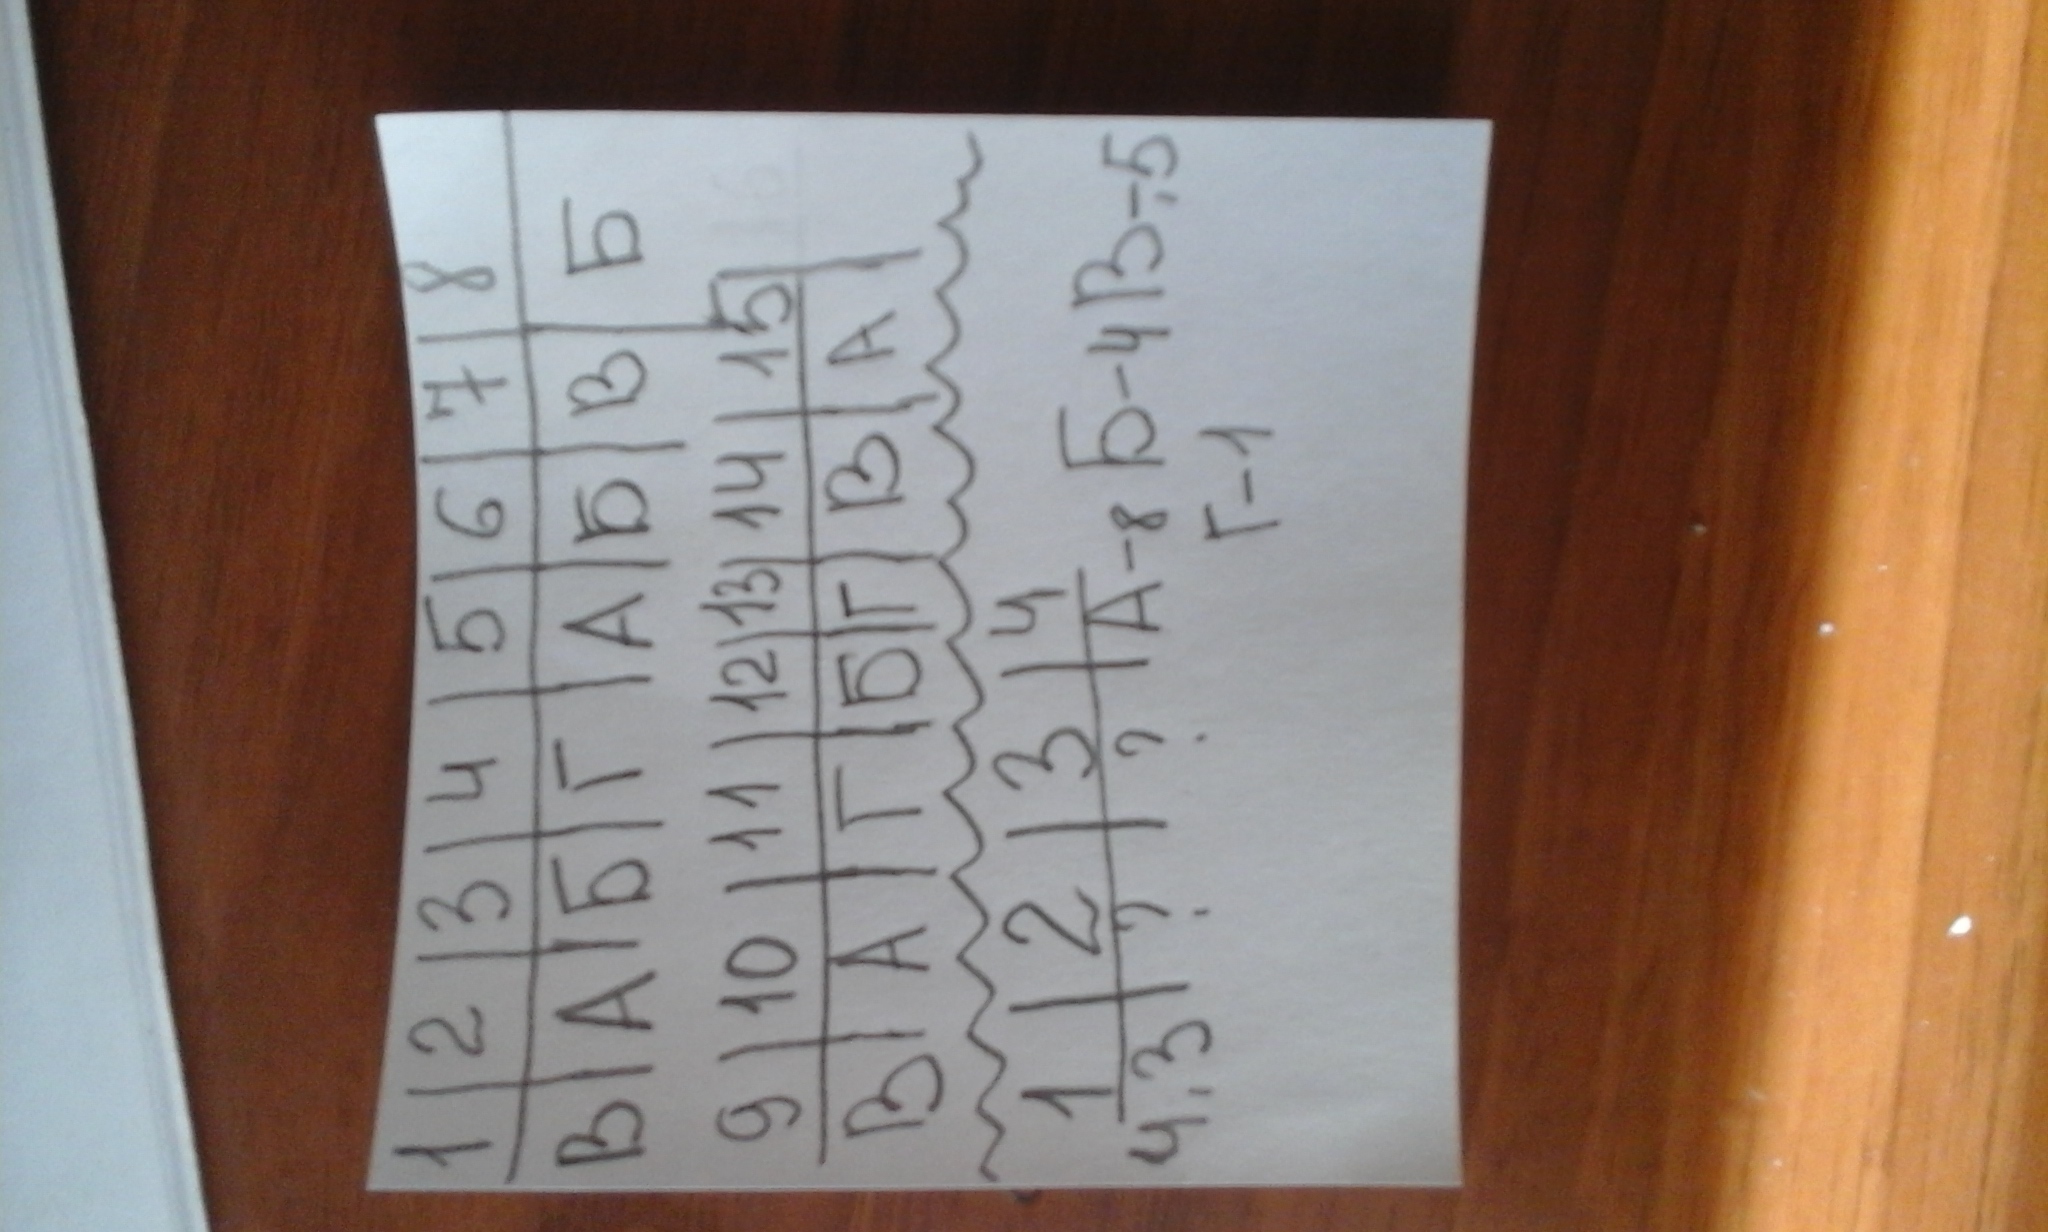 1 | 2 | 3 | 4 | 5 | 6 | 7 | 8
В | А | Б | Г | А | Б | В | Б
9 | 10 | 11 | 12 | 13 | 14 | 15
В | А | Г | Б | Г | В | А
1 | 2 | 3 | 4
4,3 | ? | ? | А-8 Б-4 В-5
Г-1